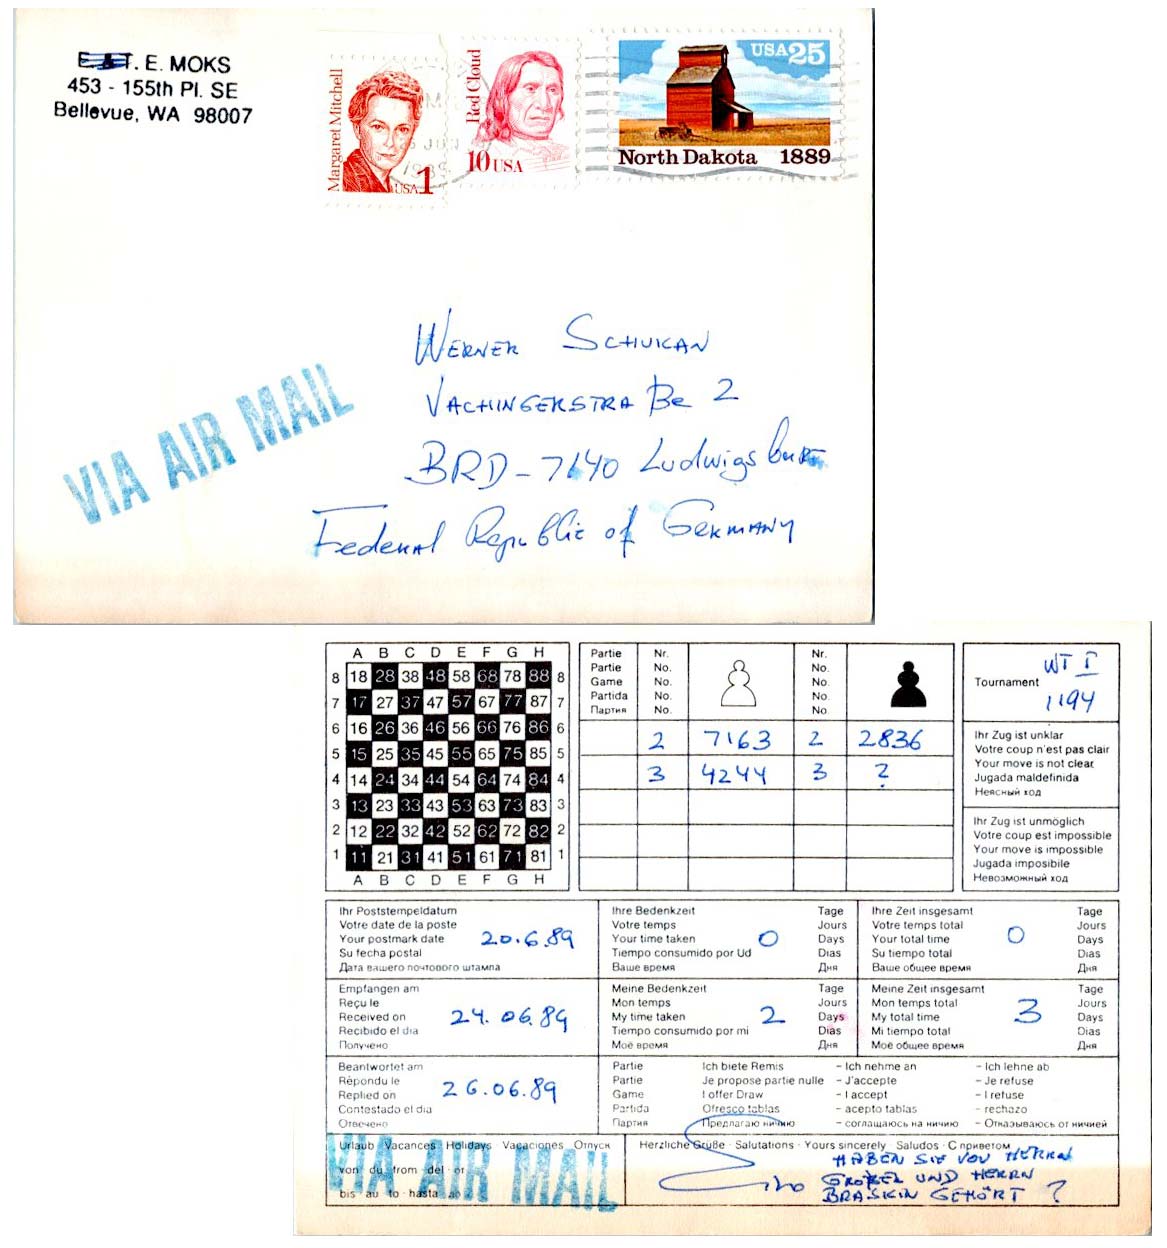 E. & T. E. MOKS
453 - 155th Pl. SE
Bellevue, WA 98007
Margaret Mitchell
USA 1
Red Cloud
10 USA
USA 25
North Dakota 1889
JUN
WERNER SCHUKAN
VACHINGERSTRAßE 2
BRD - 7140 Ludwigsburg
Federal Republic of GERMANY
VIA AIR MAIL
A B C D E F G H
8 18 28 38 48 58 68 78 88 8
7 17 27 37 47 57 67 77 87 7
6 16 26 36 46 56 66 76 86 6
5 15 25 35 45 55 65 75 85 5
4 14 24 34 44 54 64 74 84 4
3 13 23 33 43 53 63 73 83 3
2 12 22 32 42 52 62 72 82 2
1 11 21 31 41 51 61 71 81 1
A B C D E F G H
Partie Nr. Nr.
Partie No. No.
Game No. No.
Partida No. No.
Партия No. No.
2 7163 2 2836
3 4244 3 ?
Tournament WT I
1194
Ihr Zug ist unklar
Votre coup n'est pas clair
Your move is not clear
Jugada maldefinida
Неясный ход
Ihr Zug ist unmöglich
Votre coup est impossible
Your move is impossible
Jugada imposibile
Невозможный ход
Ihr Poststempeldatum
Votre date de la poste
Your postmark date
Su fecha postal
Дата вашего почтового штампа
20.6.89
Ihre Bedenkzeit Tage
Votre temps Jours
Your time taken Days
Tiempo consumido por Ud Dias
Ваше время Дня
0
Ihre Zeit insgesamt Tage
Votre temps total Jours
Your total time Days
Su tiempo total Dias
Ваше общее время Дня
0
Empfangen am
Reçu le
Received on
Recibido el dia
Получено
24.06.89
Meine Bedenkzeit Tage
Mon temps Jours
My time taken Days
Tiempo consumido por mi Dias
Мое время Дня
2
Meine Zeit insgesamt Tage
Mon temps total Jours
My total time Days
Mi tiempo total Dias
Мое общее время Дня
3
Beantwortet am
Répondu le
Replied on
Contestado el dia
Отвечено
26.06.89
Partie Ich biete Remis - Ich nehme an - Ich lehne ab
Partie Je propose partie nulle - J'accepte - Je refuse
Game I offer Draw - I accept - I refuse
Partida Ofresco tablas - acepto tablas - rechazo
Партия Предлагаю ничию - соглащаюсь на ничию - Отказываюсь от ничией
Urlaub · Vacances · Holidays · Vacaciones · Отпуск
von · du · from · del · от
bis · au · to · hasta
VIA AIR MAIL
Herzliche Grüße · Salutations · Yours sincerely · Saludos · С приветом
HABEN SIE VON HERRN
GROBEL UND HERRN
BRASKIN GEHÖRT ?